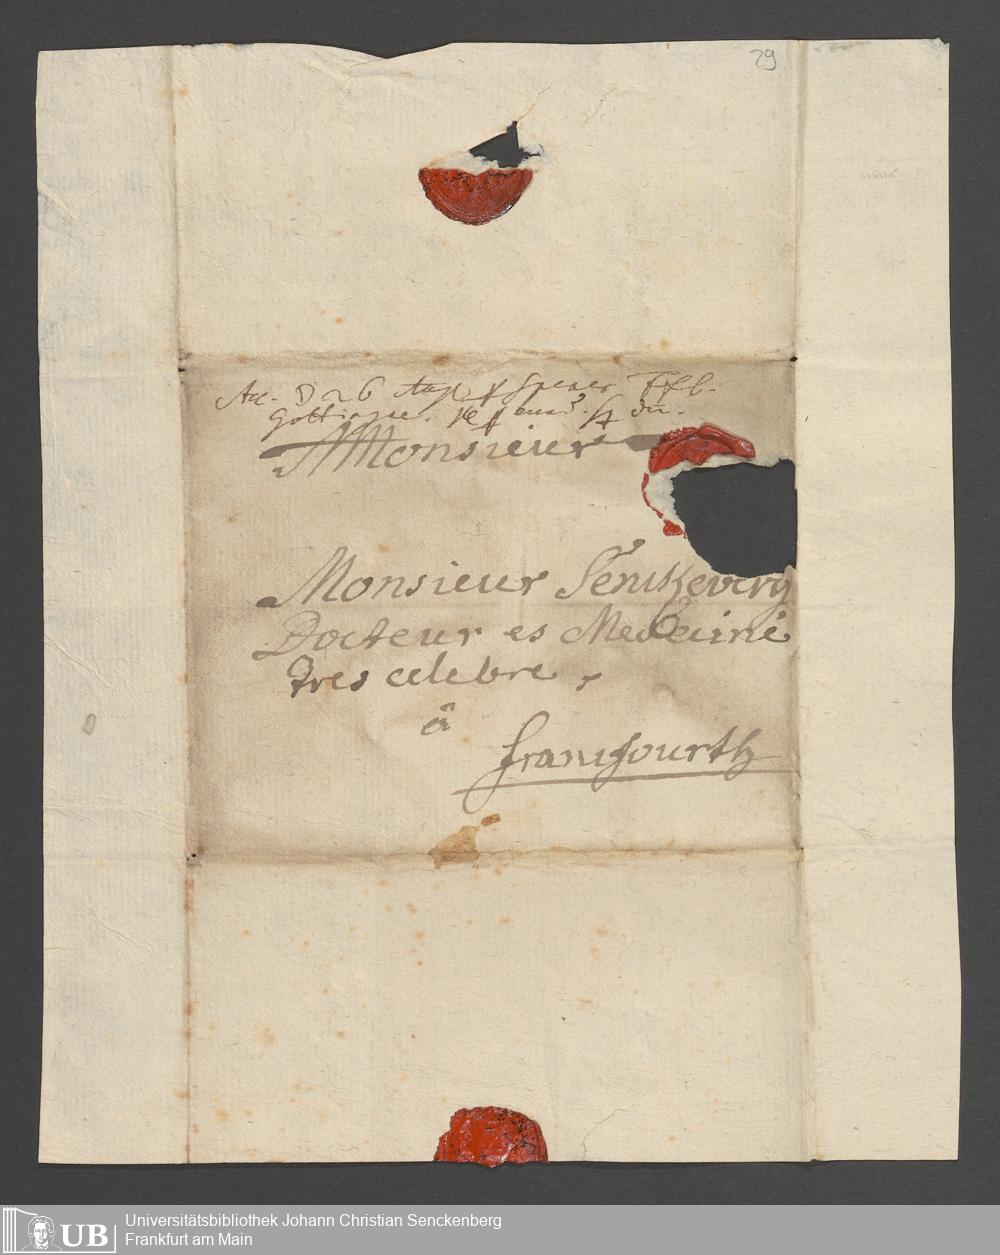 29
Acc. D 26 Aug. Spener
Gottingae. eund. du.
Monsieur
Monsieur Senckeberg
Docteur es Medecine
tres celebre,
â
francfourth
UB
Universitätsbibliothek Johann Christian Senckenberg
Frankfurt am Main